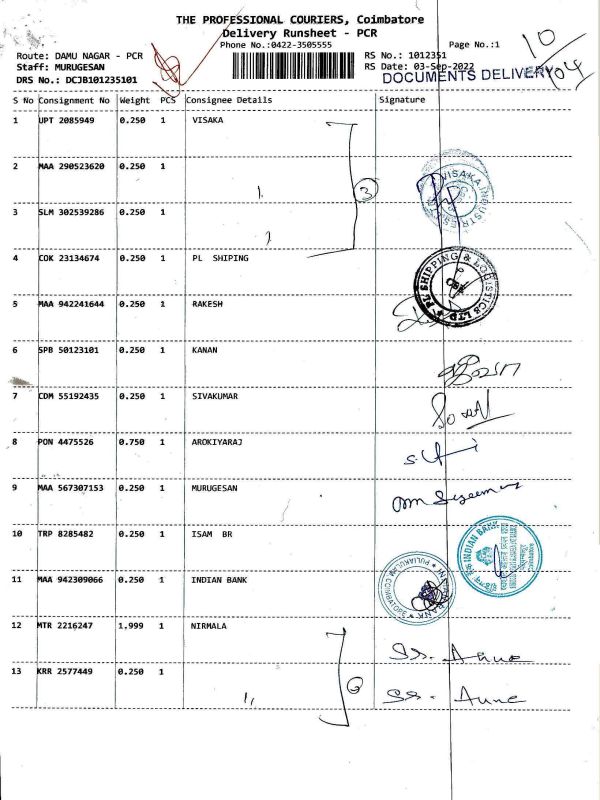 THE PROFESSIONAL COURIERS, Coimbatore
Delivery Runsheet - PCR
Phone No.:0422-3505555
Page No.:1
10
Route: DAMU NAGAR - PCR
RS No.: 1012351
Staff: MURUGESAN
RS Date: 03-Sep-2022
DRS No.: DCJB101235101
DOCUMENTS DELIVERY
104
S No Consignment No Weight PCS Consignee Details Signature
1 UPT 2085949 0.250 1 VISAKA
2 MAA 290523620 0.250 1
VISAKA INDUSTRIES
3
3 SLM 302539286 0.250 1
4 COK 23134674 0.250 1 PL SHIPING
PL SHIPPING & LOGISTICS LTD
5 MAA 942241644 0.250 1 RAKESH
6 SPB 50123101 0.250 1 KANAN
7 CDM 55192435 0.250 1 SIVAKUMAR
8 PON 4475526 0.750 1 AROKIYARAJ
9 MAA 567307153 0.250 1 MURUGESAN
10 TRP 8285482 0.250 1 ISAM BR
INDIAN BANK
11 MAA 942309066 0.250 1 INDIAN BANK
12 MTR 2216247 1.999 1 NIRMALA
13 KRR 2577449 0.250 1